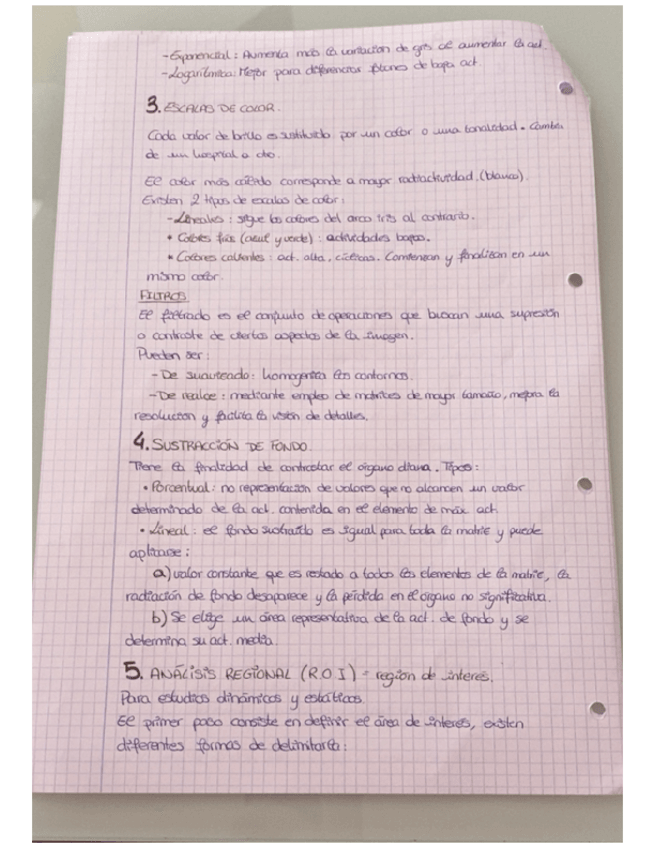 -Exponencial: Aumenta más la variación de gris al aumentar la act.
-Logarítmica: Mejor para diferenciar zonas de baja act.
3. ESCALAS DE COLOR.
Cada valor de brillo es sustituido por un color o una tonalidad. Cambia
de un hospital a otro.
El color más cálido corresponde a mayor radiactividad. (blanco).
Existen 2 tipos de escalas de color:
-Lineales: sigue los colores del arco iris al contrario.
• Colores fríos (azul y verde): actividades bajas.
• Colores calientes: act. alta. cíclicas. Comienzan y finalizan en un
mismo color.
FILTROS
El filtrado es el conjunto de operaciones que buscan una supresión
o contraste de ciertos aspectos de la imagen.
Pueden ser:
-De suavizado: homogeniza los contornos.
-De realce: mediante empleo de matrices de mayor tamaño, mejora la
resolución y facilita la visión de detalles.
4. SUSTRACCIÓN DE FONDO.
Tiene la finalidad de contrastar el órgano diana. Tipos:
• Porcentual: no representación de valores que no alcancen un valor
determinado de la act. contenida en el elemento de máx act.
• Lineal: el fondo sustraído es igual para toda la matriz y puede
aplicarse:
a) valor constante que es restado a todos los elementos de la matriz, la
radiación de fondo desaparece y la pérdida en el órgano no significativa.
b) Se elige un área representativa de la act. de fondo y se
determina su act. media.
5. ANÁLISIS REGIONAL (R.O.I) = region de interés.
Para estudios dinámicos y estáticos.
El primer paso consiste en definir el área de interés, existen
diferentes formas de delimitarla: